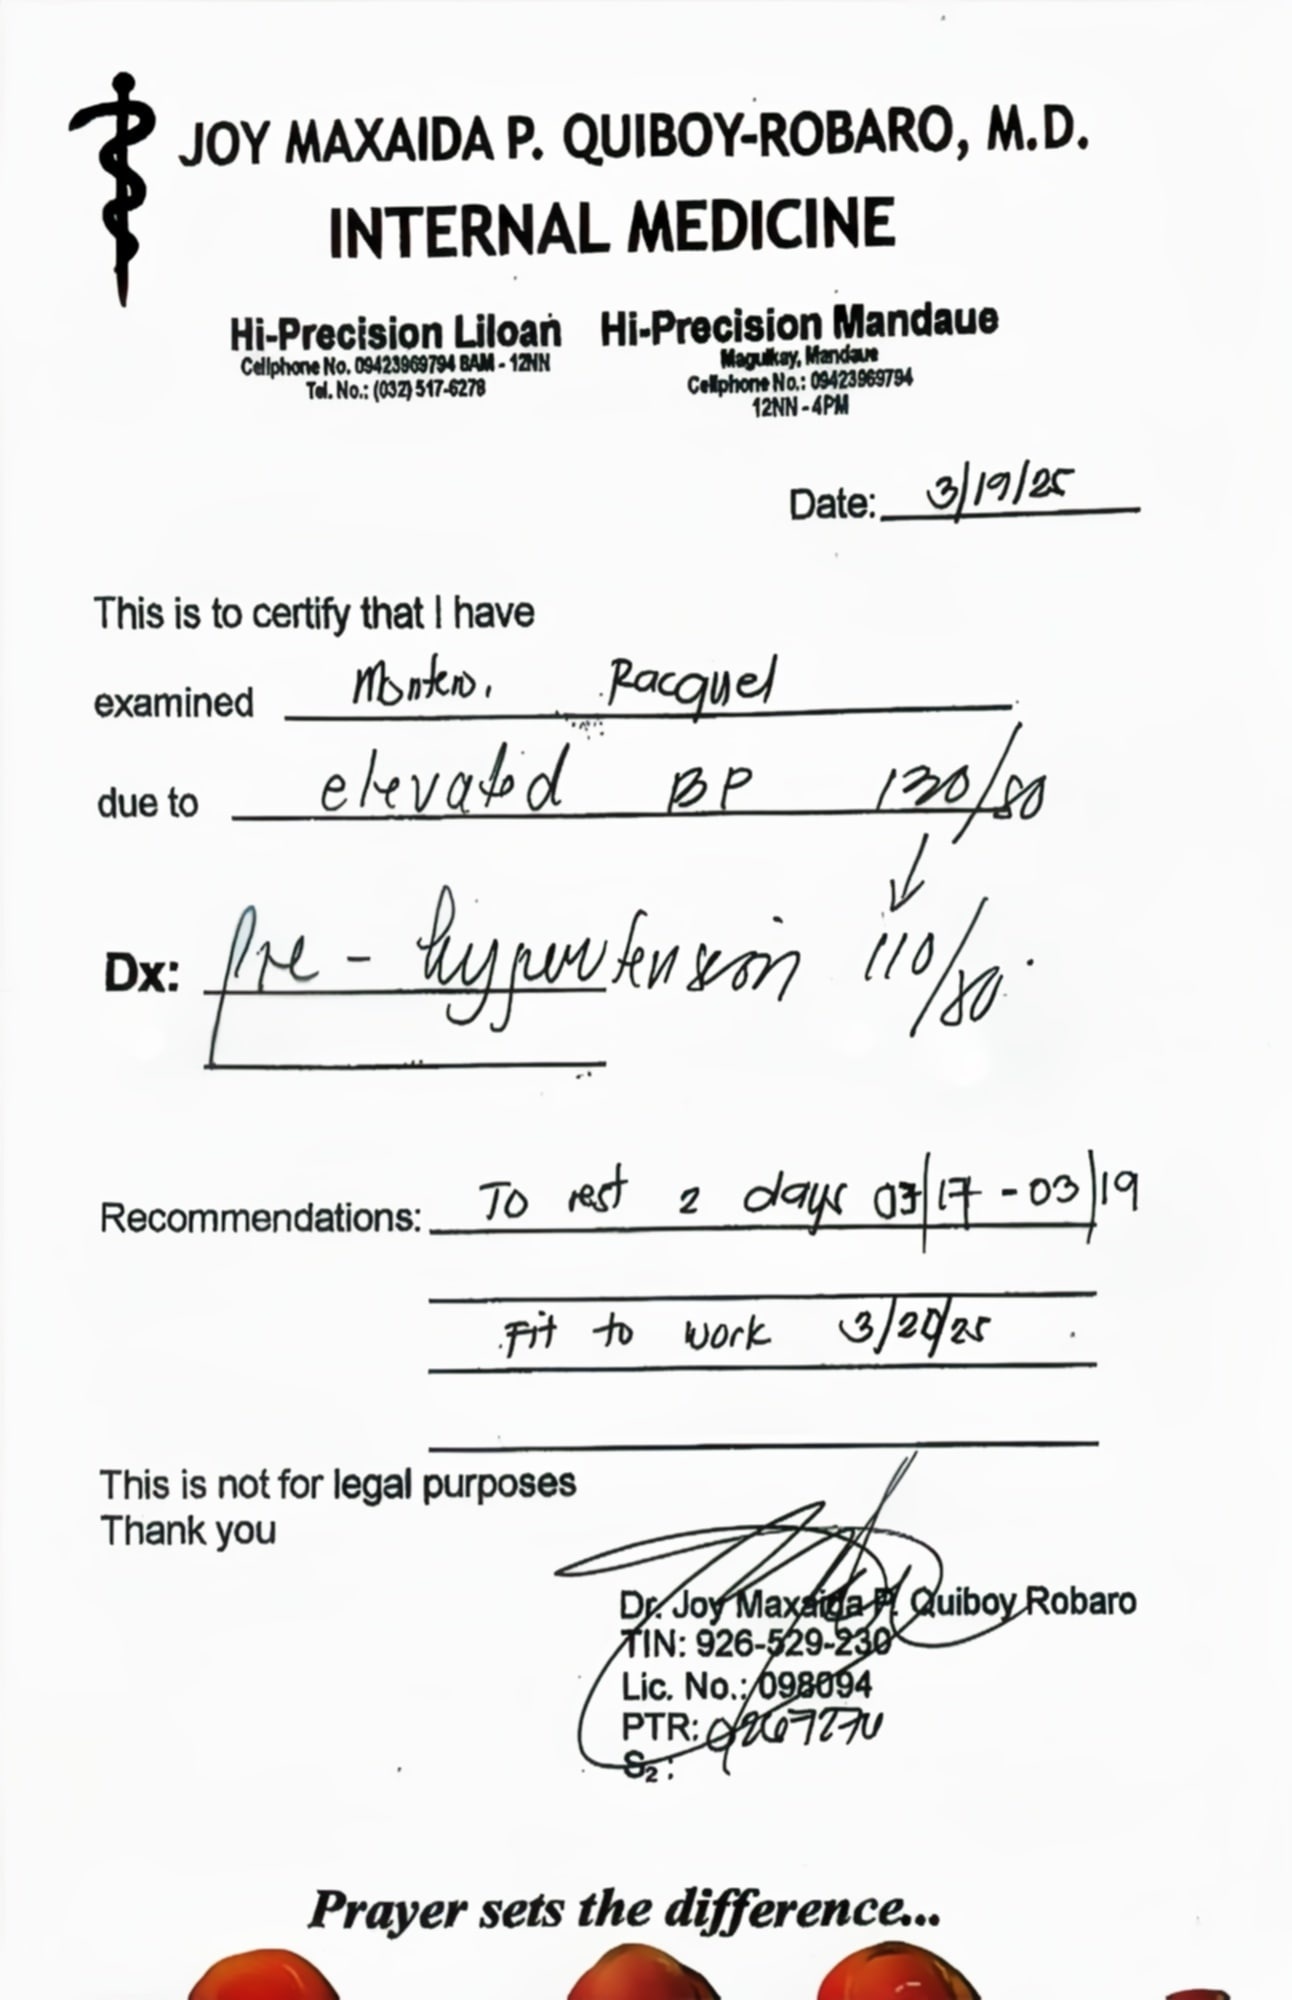 JOY MAXAIDA P. QUIBOY-ROBARO, M.D.
INTERNAL MEDICINE
Hi-Precision Liloan
Cellphone No. 09423969794 8AM - 12NN
Tel. No.: (032) 517-6278
Hi-Precision Mandaue
Maguikay, Mandaue
Cellphone No.: 09423969794
12NN - 4PM
Date: 3/19/25
This is to certify that I have
examined Montero, Racquel
due to elevated BP 130/80
Dx: Pre - hypertension 110/80.
Recommendations: To rest 2 days 03/17 - 03/19
Fit to work 3/20/25
This is not for legal purposes
Thank you
Dr. Joy Maxaida P. Quiboy Robaro
TIN: 926-529-230
Lic. No.: 098094
PTR:
S₂ :
Prayer sets the difference...